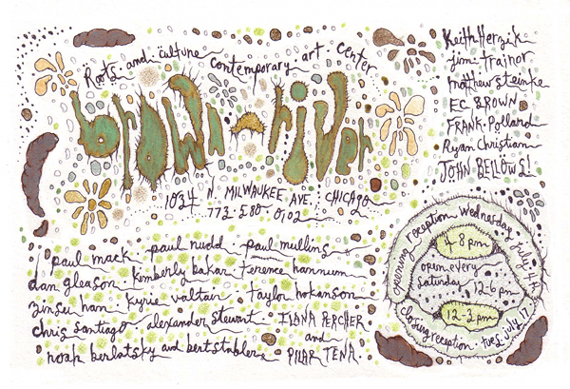 Roots and culture contemporary art center
brown-river
1034 N. MILWAUKEE AVE. CHICAGO
773-580-0102
paul mack paul nudd paul mullins
dan gleason kimberly bakar terence hannum
han kyrie valtair Taylor hokanson
chris santiago alexander stewart ILANA PERCHER
noah berlatsky and bert stabler and PILAR TENA.
Keith Herzik
jim trainor
matthew steinke
EC BROWN
FRANK Pollard
Ryan Christian
JOHN BELLOWS!
opening reception Wednesday July
4-8pm
open every
Saturday 12-6pm
12-3pm
closing reception. tues. july 17